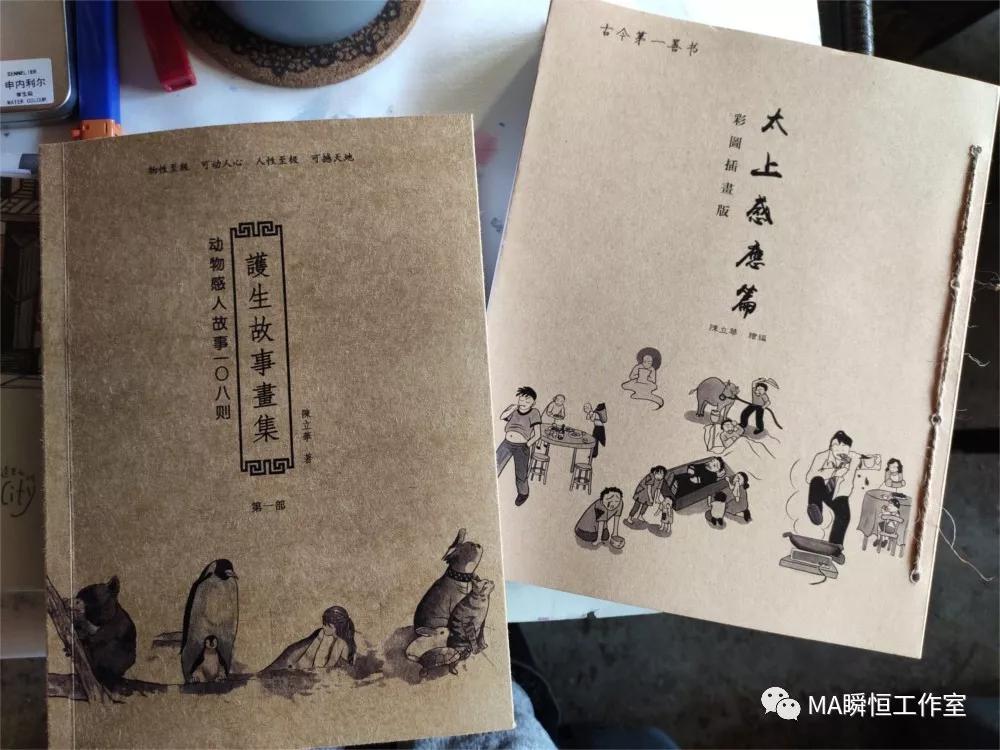 SENNELIER
申内利尔
WATER COLOUR
物性至极 可动人心 人性至极 可撼天地
護生故事畫集
动物感人故事一〇八则
陳立華 著
第一部
City
古今第一善书
太上感應篇
彩圖插畫版
陳立華 繪編
MA瞬恒工作室